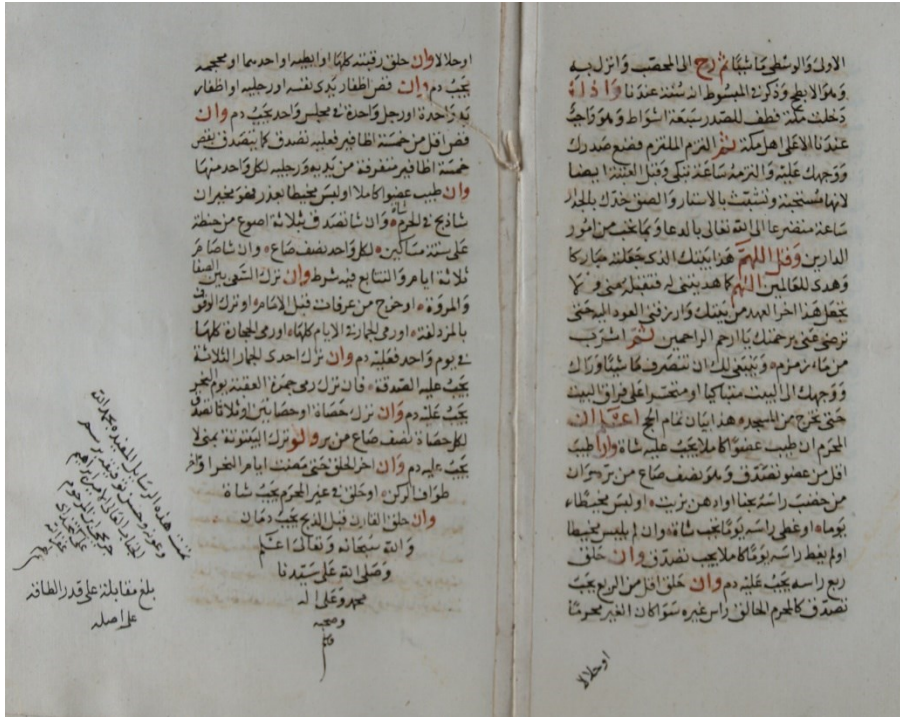 الاولى والوسطى ماشيا ثم رح الى المحصب وانزل به
وهو الابطح وذكر في المبسوط انه سنة عندنا واذا
دخلت مكة فطف للصدر سبعة اشواط وهو واجب
عندنا الا على اهل مكة ثم الزم الملتزم فضع صدرك
ووجهك عليه والتزمه ساعة تبكي وقبل العتبة ايضا
لانها مستحبة وتشبث بالاستار والصق خدك بالجدار
ساعة متضرعا الى الله تعالى بالدعاء وبما تحب من امور
الدارين وقل اللهم هذا بيتك الذي جعلته مباركا
وهدى للعالمين اللهم كما هديتني له فتقبله مني ولا
تجعل هذا اخر العهد من بيتك وارزقني العود اليه حتى
ترضى عني برحمتك يا ارحم الراحمين ثم اشرب
من ماء زمزم وينبغي لك ان تنصرف ماشيا وراك
ووجهك الى البيت متباكيا او متحسرا على فراق البيت
حتى تخرج من المسجد هذا بيان تمام الحج اعلم ان
المحرم ان طيب عضوا كاملا يجب عليه شاة وان طيب
اقل من عضو تصدق وهو نصف صاع من بر وان
من خضب راسه بحنا او ادهن بزيت او لبس مخيطا
يوما او غطى راسه يوما يجب شاة وان لم يلبس مخيطا
اولم يغط راسه يوما كاملا يجب تصدق وان حلق
ربع راسه يجب عليه دم وان حلق اقل من الربع يجب
تصدق كالمحرم الحالق راس غيره سوا كان الغير محرما
او حلالا
او حلالا وان حلق رقبته كلها او ابطيه او احدهما او محجمه
يجب دم وان قص اظفار يدي نفسه او رجليه او اظفار
يد واحدة او رجل واحدة في مجلس واحد يجب دم وان
قص اقل من خمسة اظافير فعليه تصدق كما يتصدق بقص
خمسة اظافير متفرقة من يديه ورجليه لكل واحد منها
وان طيب عضوا كاملا او لبس مخيطا بعذر فهو مخير ان
شا ذبح في الحرم شاة وان شا تصدق بثلاثة اصوع من حنطة
على ستة مساكين لكل واحد نصف صاع وان شا صام
ثلاثة ايام والتتابع فيه شرط وان ترك السعي بين الصفا
والمروة او خرج من عرفات قبل الامام او ترك الوقوف
بالمزدلفة او رمي الجمار في الايام كلها او رمي الجمار كلها
في يوم واحد فعليه دم وان ترك احدى الجمار الثلاثة
يجب عليه الصدقة فان ترك رمي جمرة العقبة يوم النحر
يجب عليه دم وان ترك حصاة او حصاتين او ثلاثا تصدق
لكل حصاة نصف صاع من بر ولو ترك البيتوتة بمنى لا
يجب عليه دم وان اخر الحلق حتى مضت ايام النحر او اخر
طواف الركن او حلق في غير المحرم يجب شاة
وان حلق القارن قبل الذبح يجب دمان
والله سبحانه وتعالى اعلم
وصلى الله على سيدنا
محمد وعلى اله
وصحبه
وسلم
تمت هذه الرسايل المفيده بحمد الله
وعونه وحسن توفيقه
بلغ مقابلة على قدر الطاقة
على اصله